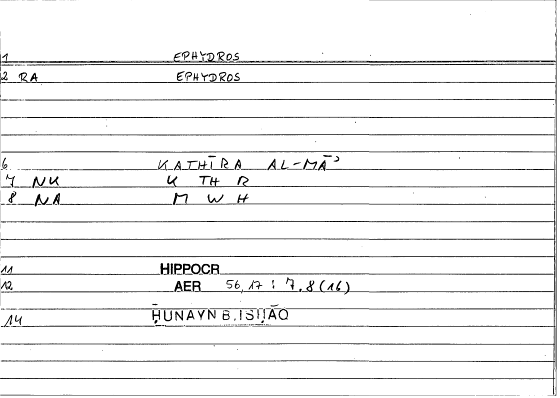 1 EPHYDROS
2 RA EPHYDROS
6 KATHĪRA AL-MĀʾ
7 NK K TH R
8 NA M W H
11 HIPPOCR
12 AER 56,17 : 7.8(16)
14 ḤUNAYN B.ISḤĀQ